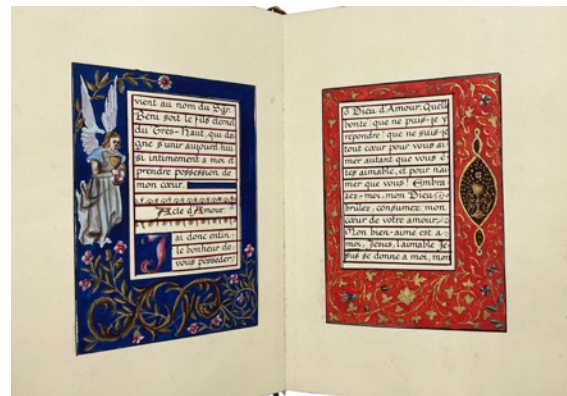 vient au nom du Sgr.
Béni soit le fils éternel
du Très-Haut, qui dai
gne s'unir aujourd'hui
si intimement à moi et
prendre possession de
mon cœur.
Acte d'Amour
J'ai donc enfin
le bonheur de
vous posséder,
ô Dieu d'Amour. Quelle
bonté! que ne puis-je y
répondre! que ne suis-je
tout cœur pour vous ai
mer autant que vous ê
tes aimable, et pour n'ai
mer que vous! Embra
sez-moi, mon Dieu;
brulez, consumez mon
cœur de votre amour.
Mon bien-aimé est à
moi, Jésus, l'aimable Jé
sus se donne à moi, mon